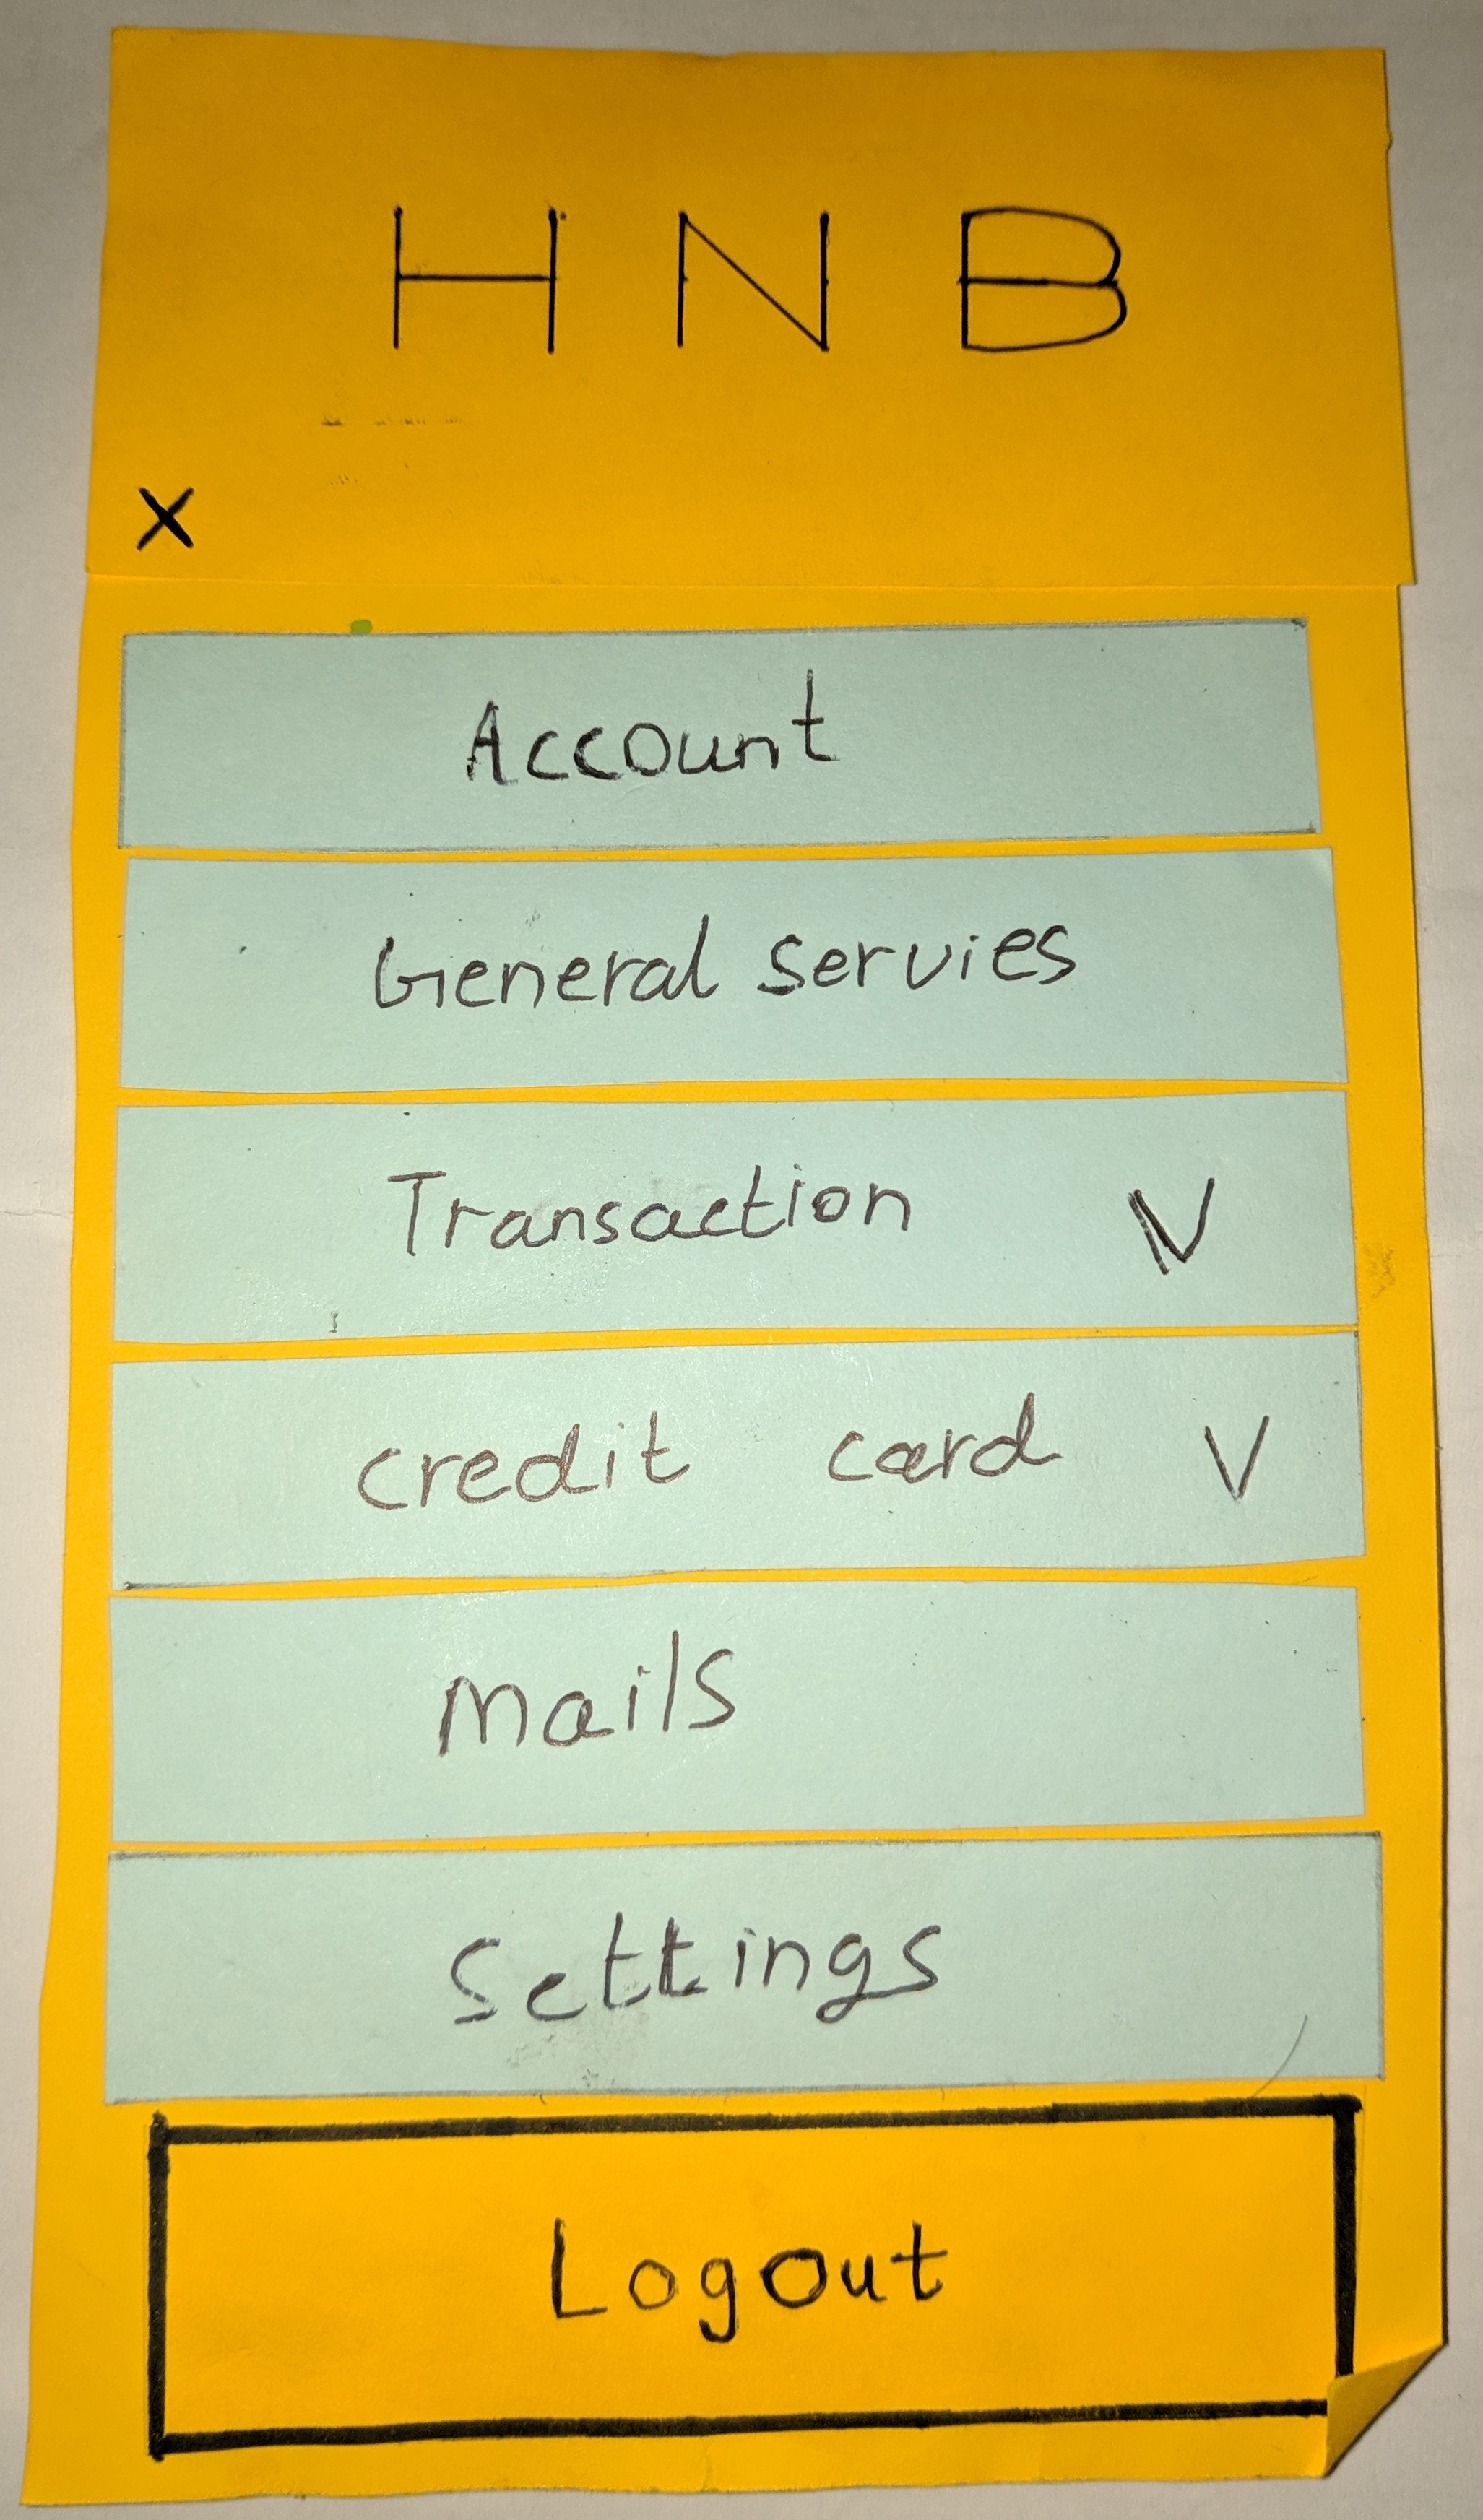 H N B
X
Account
General servies
Transaction V
credit card V
Mails
Settings
Logout